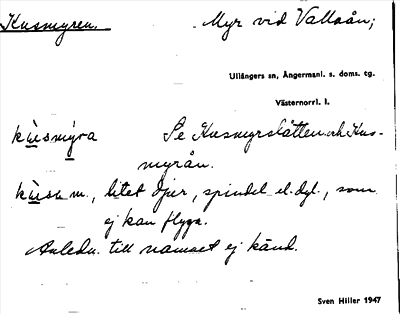 Kusmyren. Myr vid Vallaån;
Ullångers sn, Ångermanl. s. doms. tg.
Västernorrl. l.
kùsmýra Se Kusmyrslåtten och Kus-
myrån.
kùsa m., litet djur, spindel el. dyl., som
ej kan flyga.
Anledn. till namnet ej känd.
Sven Hiller 1947